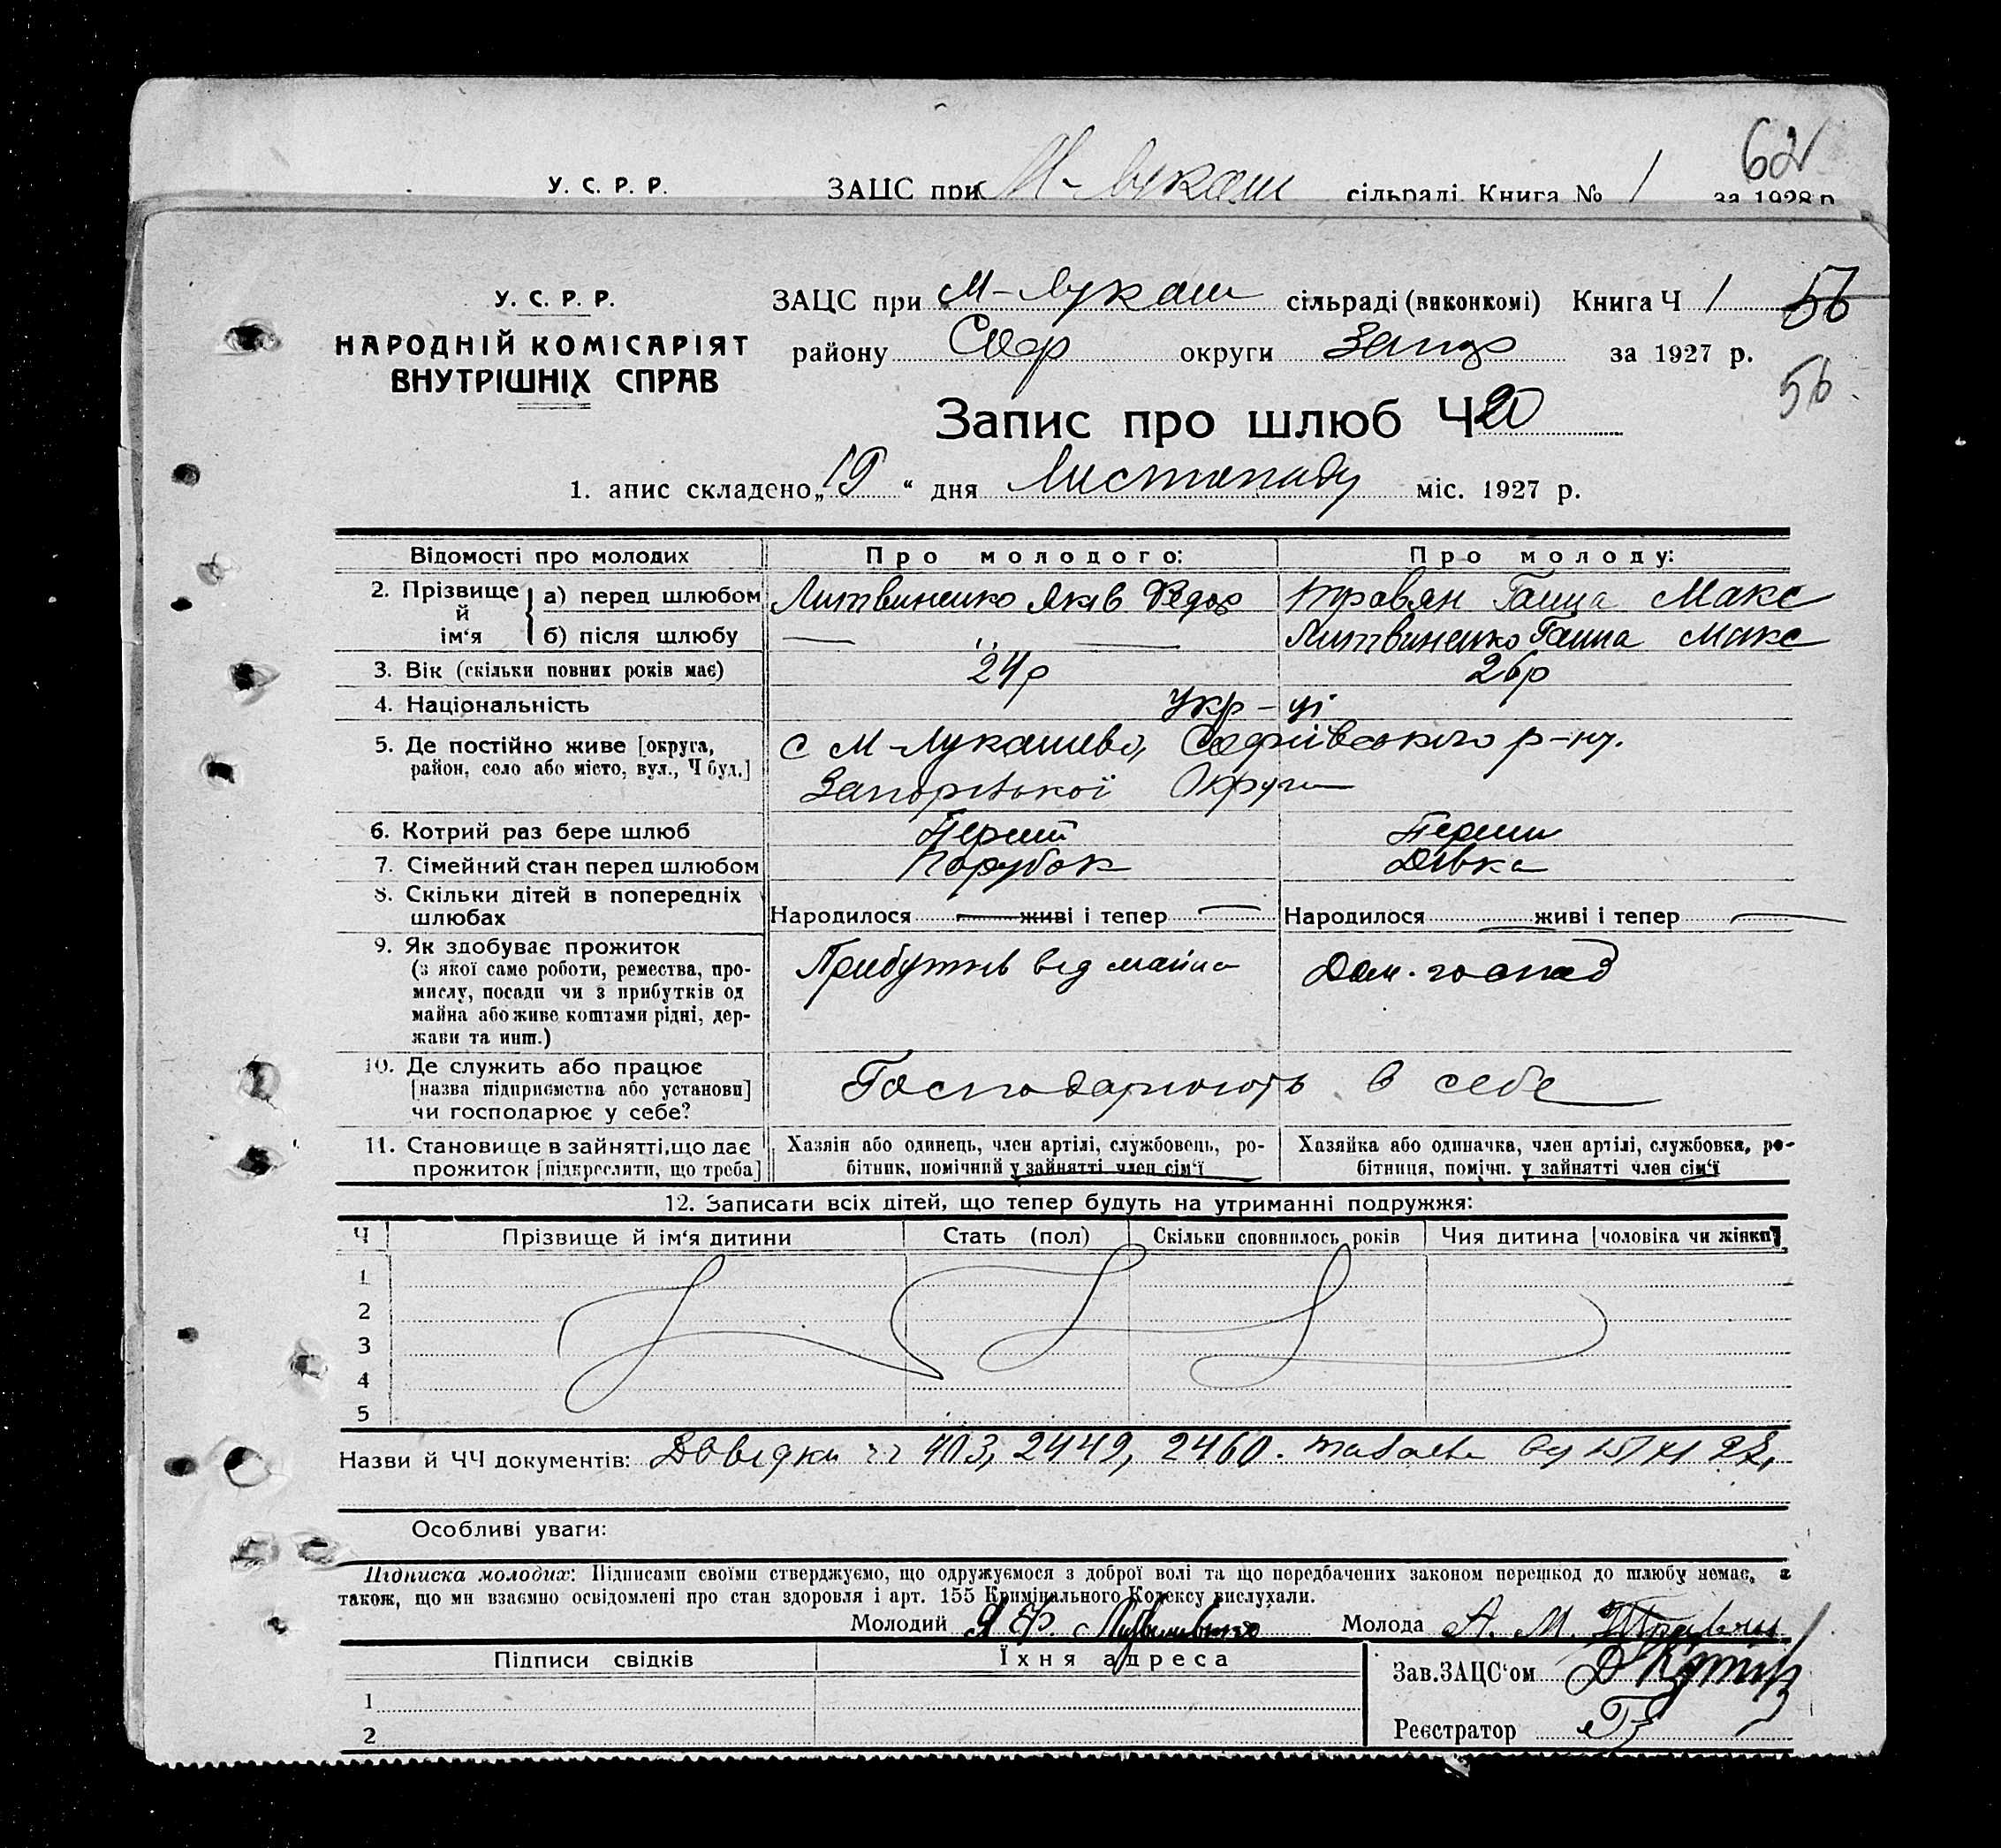 62
У. С. Р. Р. ЗАЦС при М-Лукаш сільраді. Книга № 1 за 1928 р.
У. С. Р. Р. ЗАЦС при М-Лукаш сільраді (виконкомі) Книга Ч 1 56
НАРОДНІЙ КОМІСАРІЯТ району Соф округи Запор за 1927 р.
ВНУТРІШНІХ СПРАВ 56
Запис про шлюб Ч 20
1. апис складено „19“ дня Листопаду міс. 1927 р.
Відомості про молодих Про молодого: Про молоду:
2. Прізвище й ім‘я а) перед шлюбом Литвиненко Яків Федор Травян Ганна Макс
б) після шлюбу — „ — Литвиненко Ганна Макс
3. Вік (скільки повних років має) 24 р 26 р
4. Національність Укр-ці
5. Де постійно живе [округа, с М-Лукашево, Софіївського р-ну.
район, село або місто, вул., Ч буд.] Запорізької Округи
6. Котрий раз бере шлюб Перший Перший
7. Сімейний стан перед шлюбом Парубок Дівка
8. Скільки дітей в попередніх
шлюбах Народилося — живі і тепер — Народилося — живі і тепер —
9. Як здобуває прожиток Прибутків від майна Дом. господ
(з якої саме роботи, ремества, про-
мислу, посади чи з прибутків од
майна або живе коштами рідні, дер-
жави та инш.)
10. Де служить або працює Господарюють в себе
[назва підприємства або установи]
чи господарює у себе?
11. Становище в зайнятті, що дає Хазяїн або одинець, член артілі, службовець, ро- Хазяйка або одиначка, член артілі, службовка, ро-
прожиток [підкреслити, що треба] бітник, помічний у зайнятті член сім‘ї бітниця, помічн. у зайнятті член сім‘ї
12. Записати всіх дітей, що тепер будуть на утриманні подружжя:
Ч Прізвище й ім‘я дитини Стать (пол) Скільки сповнилось років Чия дитина [чоловіка чи жінки]
1
2
3
4
5
Назви й ЧЧ документів: Довідки чч 403, 2449, 2460.
Особливі уваги:
Підписка молодих: Підписами своїми стверджуємо, що одружуємося з доброї волі та що передбачених законом перешкод до шлюбу немає, а
також, що ми взаємно освідомлені про стан здоровля і арт. 155 Кримінального Кодексу вислухали.
Молодий Я Ф. Литвиненко Молода А. М. Травян
Підписи свідків Їхня адреса Зав. ЗАЦС‘ом
1
2 Реєстратор